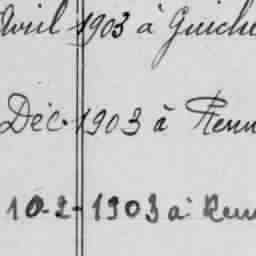 Avril 1903 à Guiche
Déc. 1903 à Renn
10-2-1903 à: Renn